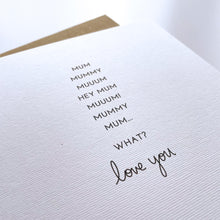 MUM
MUMMY
MUUUM
HEY MUM
MUUUM!
MUMMY
MUM...
WHAT?
love you